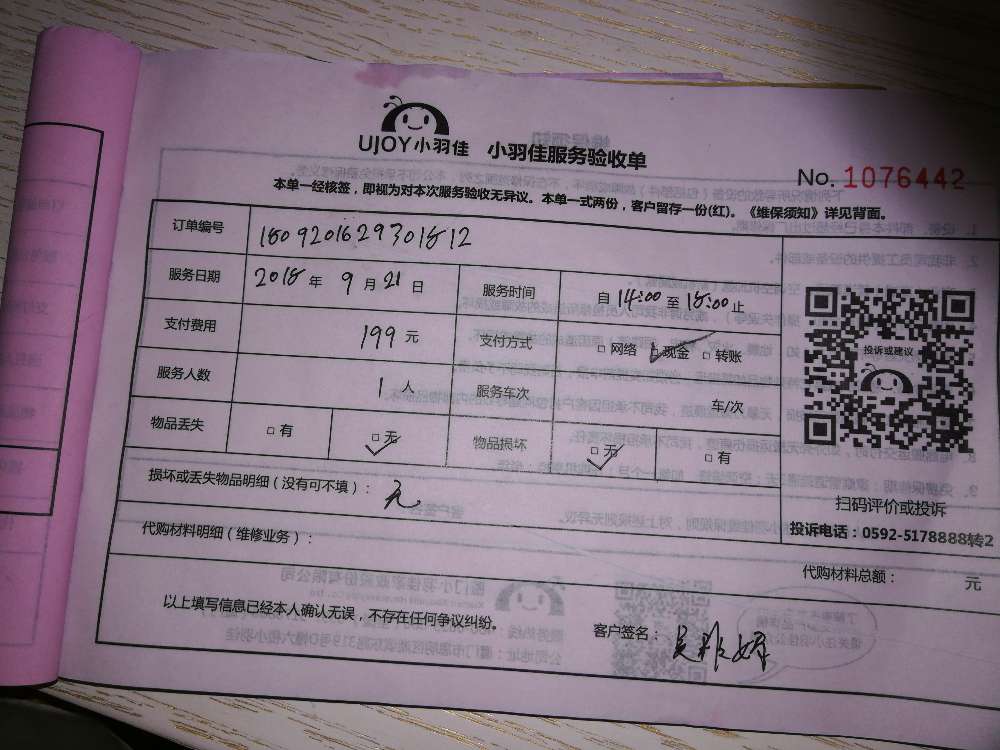 UJOY小羽佳 小羽佳服务验收单
No. 1076442
本单一经核签，即视为对本次服务验收无异议。本单一式两份，客户留存一份(红)。《维保须知》详见背面。
订单编号 1809201629301812
服务日期 2018 年 9 月 21 日 服务时间 自 14:00 至 18:00 止
支付费用 199 元 支付方式 □ 网络 □ 现金 □ 转账
服务人数 1 人 服务车次 车/次
物品丢失 □ 有 □ 无 物品损坏 □ 无 □ 有
投诉或建议
扫码评价或投诉
投诉电话：0592-5178888转2
损坏或丢失物品明细（没有可不填）： 无
代购材料明细（维修业务）：
代购材料总额： 元
以上填写信息已经本人确认无误，不存在任何争议纠纷。
客户签名：